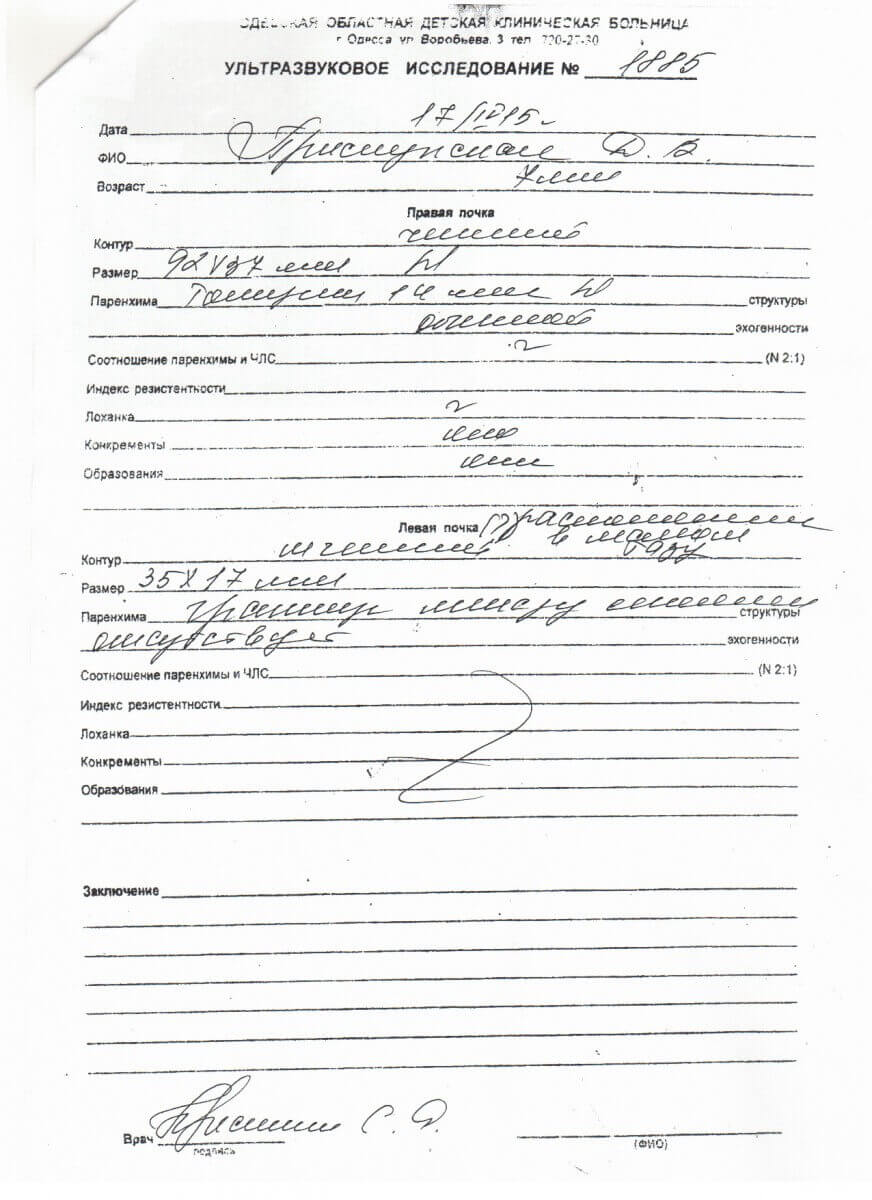 ОДЕССКАЯ ОБЛАСТНАЯ ДЕТСКАЯ КЛИНИЧЕСКАЯ БОЛЬНИЦА
г Одесса ул Воробьева, 3 тел 720-27-30
УЛЬТРАЗВУКОВОЕ ИССЛЕДОВАНИЕ № 1885
Дата 17/IV 15г
ФИО Д. В.
Возраст 7 лет
Правая почка
Контур четкий
Размер 92х37 мм N
Паренхима толщин 14 мм N структуры
обычной эхогенности
Соотношение паренхимы и ЧЛС (N 2:1)
Индекс резистентности
Лоханка
Конкременты
Образования
Левая почка расположена
в малом тазу
Контур нечеткий
Размер 35х17 мм
Паренхима границу между слоями структуры
отсутствует эхогенности
Соотношение паренхимы и ЧЛС (N 2:1)
Индекс резистентности
Лоханка
Конкременты
Образования
Заключение
Врач С. Д.
подпись (ФИО)